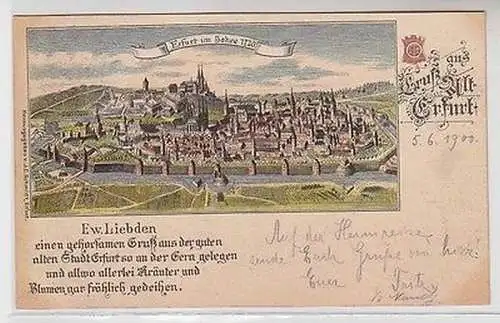 Erfurt im Jahre 1740
Gruß aus
Alt-
Erfurt.
5. 6. 1900.
Ew. Liebden
einen gehorsamen Gruß aus der guten
alten Stadt Erfurt so an der Gera gelegen
und allwo allerlei Kräuter und
Blumen gar fröhlich gedeihen.
Auf der Heimreise
sende Euch Grüße von hier
Euer Fritz